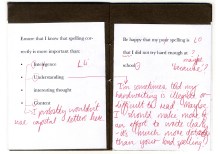 Ensure that I know that spelling cor-
rectly is more important than:
• Intelligence LO
• Understanding
• interesting thought
• Content
I probably wouldn't
use capital letters here.
Be happy that my poor spelling is LO
that I did not try hard enough at maybe
school because?
I'm sometimes told my
handwriting is illegible or
difficult to read. Maybe
I should make more of
an effort to write neatly
it's much more
than your bad spelling